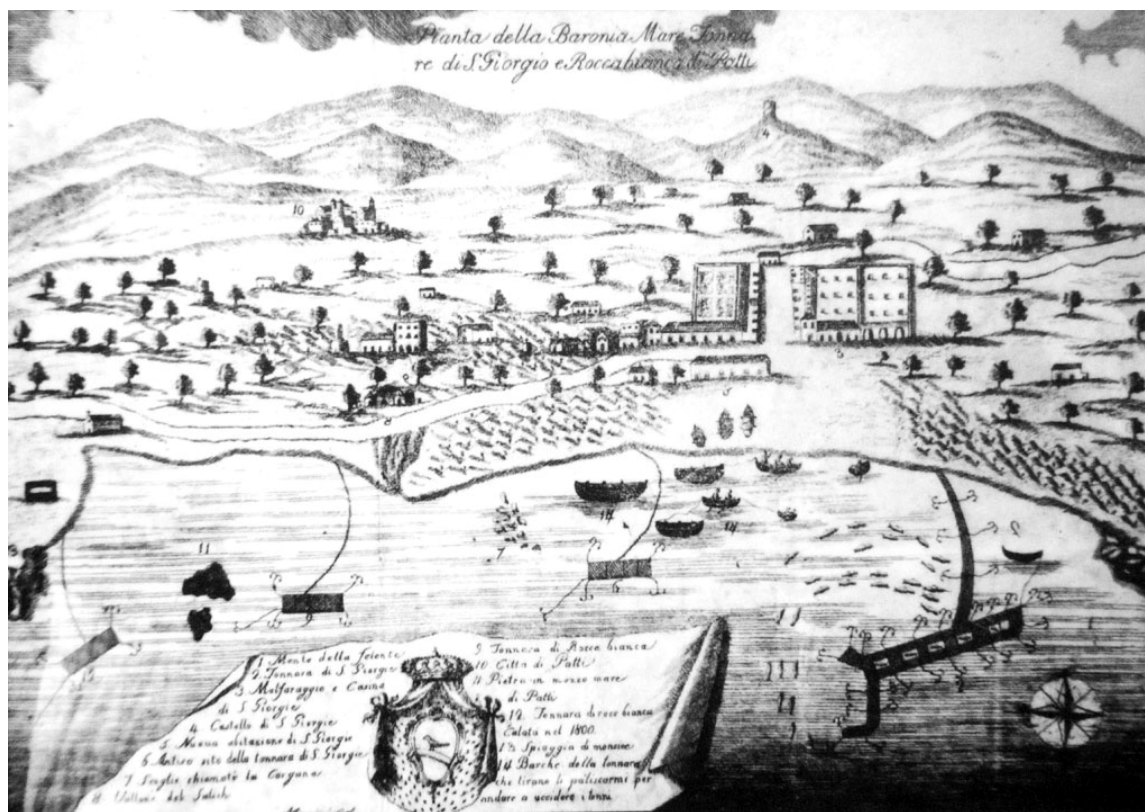 Pianta della Baronia Mare Tonna
re di S. Giorgio e Roccabianca di Patti
4
10
3
5
8
11
7
14
14
9
1 Monte della
2 Tonnara di S. Giorgio
3 Malfaraggio e Casina
di S. Giorgio
4 Castello di S. Giorgio
5 Nuova abitazione di S. Giorgio
6 Antico sito della tonnara di S. Giorgio
7 Scoglio chiamato la
8 Vallone del
9 Tonnara di Rocca bianca
10 Citta di Patti
11 Pietra in mezzo mare
di Patti
12 Tonnara di roca bianca
Calata nel 1800
13 Spiaggia di
14 Barche della tonnara
che tirano li paliscarmi per
andare a uccidere i tonni